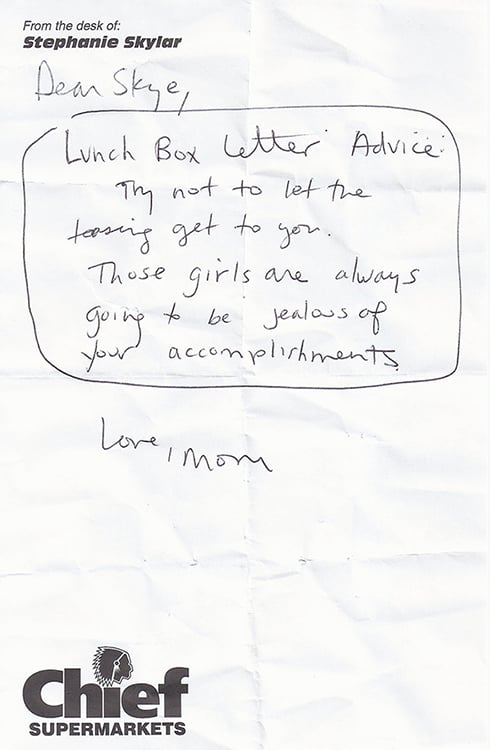 From the desk of:
Stephanie Skylar
Dear Skye,
Lunch Box Letter Advice:
Try not to let the
teasing get to you.
Those girls are always
going to be jealous of
your accomplishments
Love, Mom
Chief
SUPERMARKETS